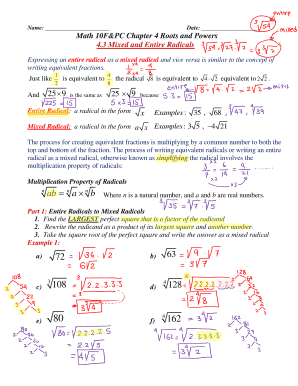 Name: Date:
Math 10F&PC Chapter 4 Roots and Powers
4.3 Mixed and Entire Radicals
entire
∛54
mixed
∛54 = ∛27·∛2
= 3∛2
Expressing an entire radical as a mixed radical and vice versa is similar to the concept of
writing equivalent fractions.
Just like 1/2 is equivalent to 4/8 the radical √8 is equivalent to √4·√2 equivalent to 2√2.
entire √8 = √4·√2 = 2√2 → mixed
And √25×9 is the same as √25 × √9 because
√225 = 15
5×3 = 15
Entire Radical: a radical in the form √x Examples: √35, √68,
Mixed Radical: a radical in the form a√x Examples: 3√5, −4√21
The process for creating equivalent fractions is multiplying by a common number to both the
top and bottom of the fraction. The process of writing equivalent radicals or writing an entire
radical as a mixed radical, otherwise known as simplifying the radical involves the
multiplication property of radicals:
Multiplication Property of Radicals
ⁿ√ab = ⁿ√a × ⁿ√b Where n is a natural number, and a and b are real numbers.
Part 1: Entire Radicals to Mixed Radicals
1. Find the LARGEST perfect square that is a factor of the radicand
2. Rewrite the radicand as a product of its largest square and another number.
3. Take the square root of the perfect square and write the answer as a mixed radical
Example 1:
a) √72 = √36·√2
= 6√2
b) √63 = √9·√7
= 3√7
c) ∛108 = ∛2·2·3·3·3
= 3∛4
d) ∜128 =
= 2∜8
e) √80
√80 = √2·2·2·2·5
= 2·2√5
= 4√5
f) ∜162
∜162 = ∜2·3·3·3·3
= 3∜2